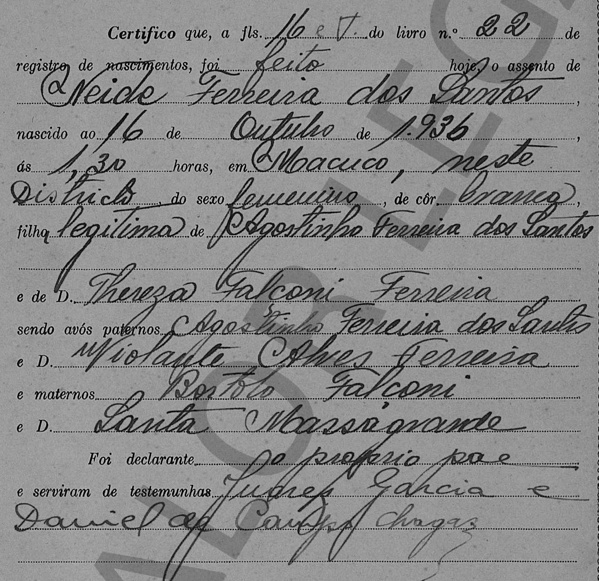 Certifico que, a fls. 16 e V. do livro n.º 22 de
registro de nascimentos, foi feito hoje, o assento de
Neide Ferreira dos Santos,
nascido ao 16 de Outubro de 1.936,
ás 1,30 horas, em Macuco, neste
Districto, do sexo femenino, de côr branca,
filha legitima de Agostinho Ferreira dos Santos
e de D. Thereza Falconi Ferreira
sendo avós paternos Agostinho Ferreira dos Santos
e D. Violante Alves Ferreira
e maternos Bortolo Falconi
e D. Santa Massagrande
Foi declarante o proprio pae
e serviram de testemunhas Juarez Garcia e
Daniel Chagas
VALOR LEGA